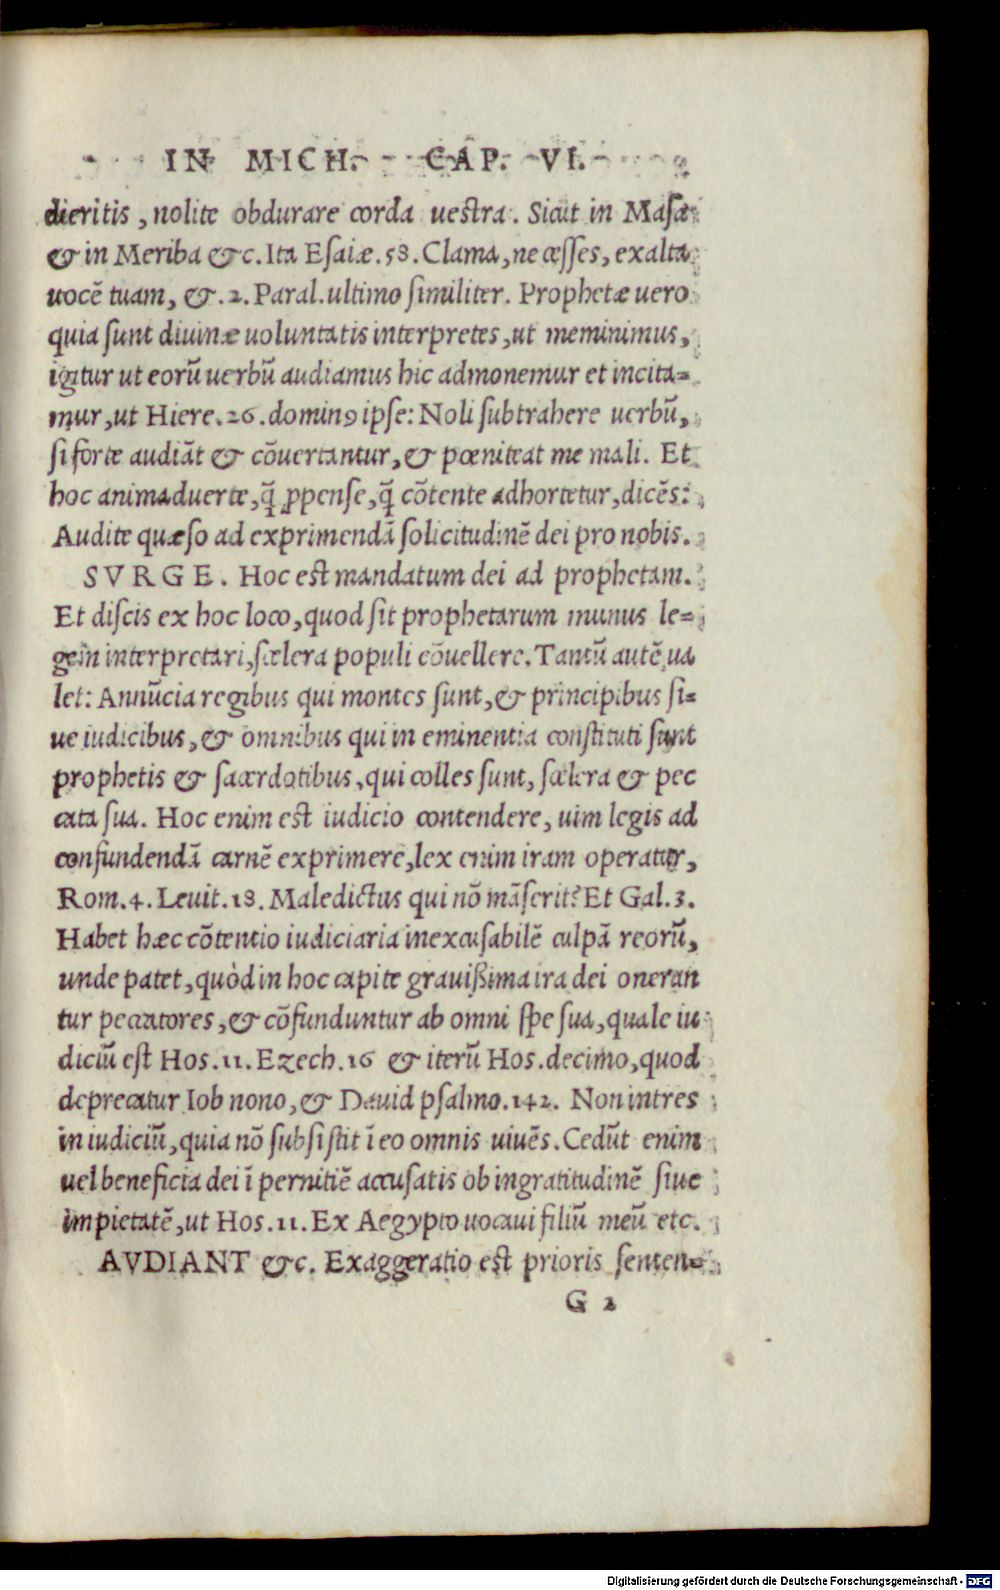 IN MICH. CAP. VI.
dieritis, nolite obdurare corda uestra. Sicut in Masæ
& in Meriba &c. Ita Esaiæ. 58. Clama, ne cesses, exalta
uocẽ tuam, &. 2. Paral. ultimo similiter. Prophetæ uero
quia sunt diuinæ uoluntatis interpretes, ut meminimus,
igitur ut eorũ uerbũ audiamus hic admonemur et incita=
mur, ut Hiere. 26. dominꝯ ipse: Noli subtrahere uerbũ,
si forte audiãt & cõuertantur, & pœniteat me mali. Et
hoc animaduerte, q̃ ꝓpense, q̃ cõtente adhortetur, dicẽs:
Audite quæso ad exprimendã solicitudinẽ dei pro nobis.
SVRGE. Hoc est mandatum dei ad prophetam.
Et discis ex hoc loco, quod sit prophetarum munus le=
gem interpretari, scelera populi cõuellere. Tantũ autẽ ua
let: Annũcia regibus qui montes sunt, & principibus si=
ue iudicibus, & omnibus qui in eminentia constituti sunt
prophetis & sacerdotibus, qui colles sunt, scelera & pec
cata sua. Hoc enim est iudicio contendere, uim legis ad
confundendã carnẽ exprimere, lex enim iram operatur,
Rom. 4. Leuit. 18. Maledictus qui nõ mãserit? Et Gal. 3.
Habet hæc cõtentio iudiciaria inexcusabilẽ culpã reorũ,
unde patet, quòd in hoc capite grauißima ira dei oneran
tur peccatores, & cõfunduntur ab omni spe sua, quale iu
diciũ est Hos. 11. Ezech. 16 & iterũ Hos. decimo, quod
deprecatur Iob nono, & Dauid psalmo. 142. Non intres
in iudiciũ, quia nõ subsistit ĩ eo omnis uiuẽs. Cedũt enim
uel beneficia dei ĩ pernitiẽ accusatis ob ingratitudinẽ siue
impietatẽ, ut Hos. 11. Ex Aegypto uocaui filiũ meũ etc.
AVDIANT &c. Exaggeratio est prioris senten=
G 2
Digitalisierung gefördert durch die Deutsche Forschungsgemeinschaft - DFG